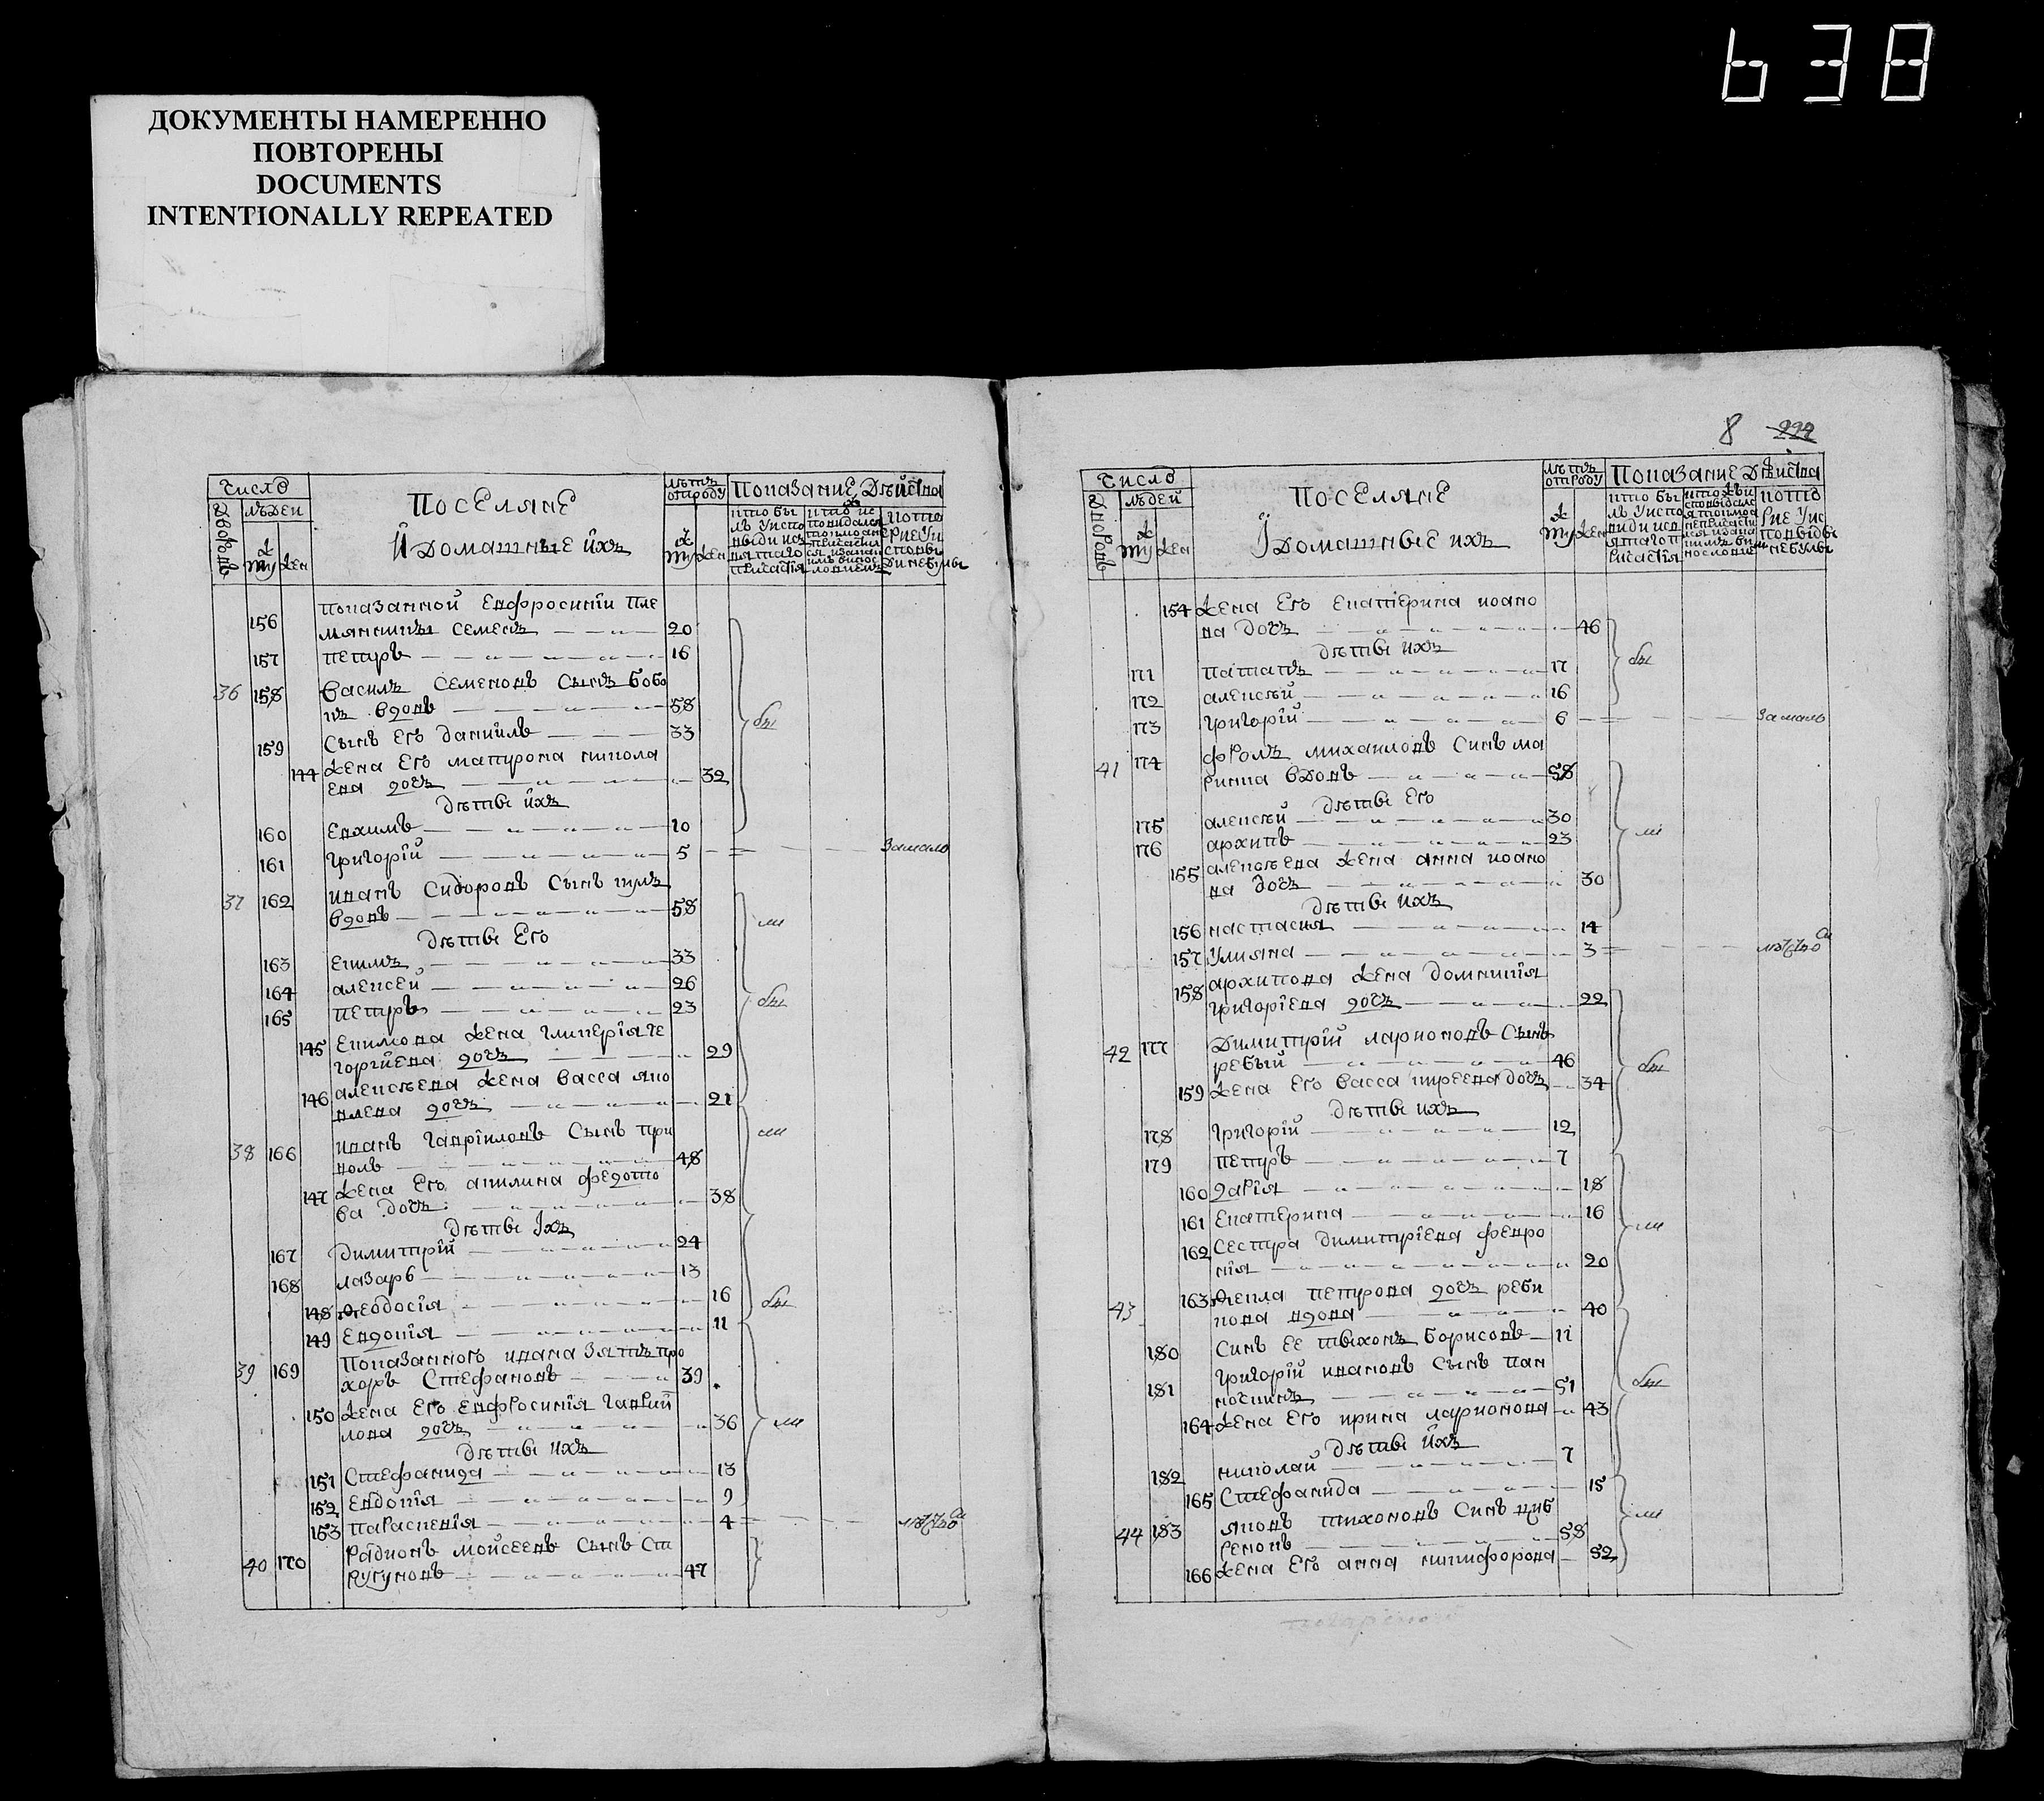 638
ДОКУМЕНТЫ НАМЕРЕННО
ПОВТОРЕНЫ
DOCUMENTS
INTENTIONALLY REPEATED
Число
людей
дворовъ
муж
жен
Поселяне
И домашные ихъ
лѣтъ
отроду
муж
жен
Показание действа
показанной Евфросинїи пле
156 мянникъ Семенъ 20
157 петръ 16
36 158 василъ Семеновъ Сынъ бобо
къ вдовъ 58
159 Сынъ Его данийлъ 33
144 жена Его матрона никола
ева дочъ 32
дѣти ихъ
160 Евхимъ 10
161 григорїй 5 замало
37 162 иванъ Сидоровъ Сынъ
вдовъ 58 ли
дѣти Его
163 Екимъ 33
164 алексей 26
165 петръ 23 бы
145 Екимова жена гликерїя ге
горгїева дочъ 29
146 алексѣева жена васса яко
влева дочъ 21
38 166 иванъ гаврїиловъ Сынъ при
колъ 48 ли
147 жена Его акилина федото
ва дочъ 38
дѣти ихъ
167 димитрїй 24
168 лазаръ 13
148 Ѳеодосїя 16 бы
149 Евдокїя 11
39 169 показанного ивана зятъ про
хоръ Стефановъ 39
150 жена Его Евфросинїя гаврїи
лова дочъ 36 ли
дѣти ихъ
151 Стефанида 13
152 Евдокїя 9
153 параскевїя 4
40 170 радионъ мойсеевъ Сынъ Ст
ругуновъ 47
8 224
Число
людей
дворовъ
муж
жен
Поселяне
И домашные ихъ
лѣтъ
отроду
муж
жен
Показание действа
154 жена Его Екатерина иоано
ва дочъ 46
дѣти ихъ
171 патапъ 17 бы
172 алексѣй 16
173 григорїй 6 замало
41 174 фролъ михаиловъ Синъ ма
ринка вдовъ 58
дѣти Его
175 алексѣй 30
176 архипъ 23 ли
155 алексѣева жена анна иоано
ва дочъ 30
дѣти ихъ
156 настасия 14
157 Улияна 3
158 архипова жена домникїя
григорїева дочъ 22
42 177 Димитрїй ларионовъ Сынъ
ребый 46 бы
159 жена Его васса дочъ 34
дѣти ихъ
178 григорїй 12
179 петръ 7
160 дарїя 18
161 Екатерина 16 ли
162 Сестра димитрїева февро
нїя 20
43 163 Ѳекла петрова дочъ реби
кова вдова 40
180 Синъ Ее тихонъ борисовъ 11
181 григорїй ивановъ Сынъ пан
ночкинъ 51 бы
164 жена Его ирина ларионова 43
дѣти ихъ
182 николай 7
165 Стефанида 15
44 183 яковъ тихоновъ Синъ циб
реновъ 58 ли
166 жена Его анна никифорова 52